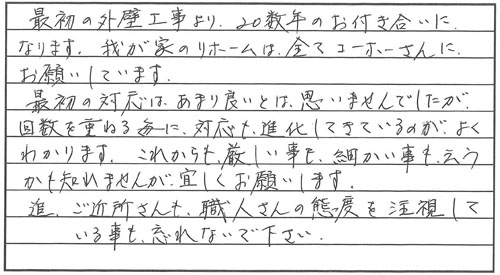 最初の外壁工事より、20数年のお付き合いに
なります。我が家のリホームは、全てユーホーさんに
お願いしています。
最初の対応は、あまり良いとは、思いませんでしたが、
回数を重ねる毎に、対応も、進化してきているのが、よく
わかります。これからも、厳しい事も、細かい事も、云う
かも知れませんが、宜しくお願いします。
追、ご近所さんも、職人さんの態度を注視して
いる事も、忘れないで下さい。